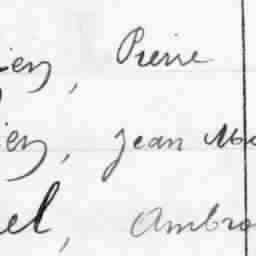 ien, Pierre
ien, Jean Ma
el, Ambro